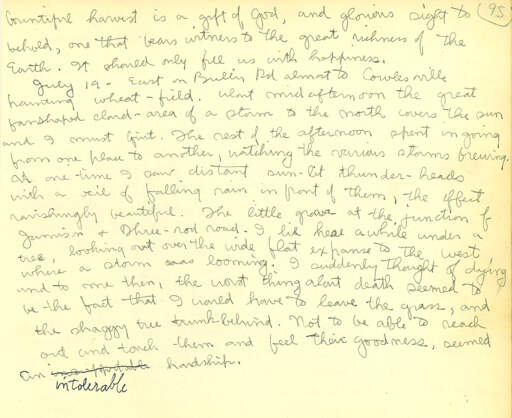 bountiful harvest is a gift of God, and glorious sight to
95
behold, one that bears witness to the great richness of the
Earth. It should only fill us with happiness.
July 19 - East on Bullis Rd almost to Cowlesville
painting wheat-field. About mid afternoon the great
fanshaped cloud-area of a storm to the north covers the sun
and I must quit. The rest of the afternoon spent in going
from one place to another, watching the various storms brewing.
At one time I saw distant sun-lit thunder-heads
with a veil of falling rain in front of them, the effect
ravishingly beautiful. The little grove at the junction of
Jamison & Three-rod road. I lie here awhile under a
tree, looking out over the wide flat expanse to the west
where a storm was looming. I suddenly thought of dying
and to me then, the worst thing about death seemed to
be the fact that I would have to leave the grass, and
the shaggy tree trunk behind. Not to be able to reach
out and touch them and feel their goodness, seemed
an hardship.
intolerable